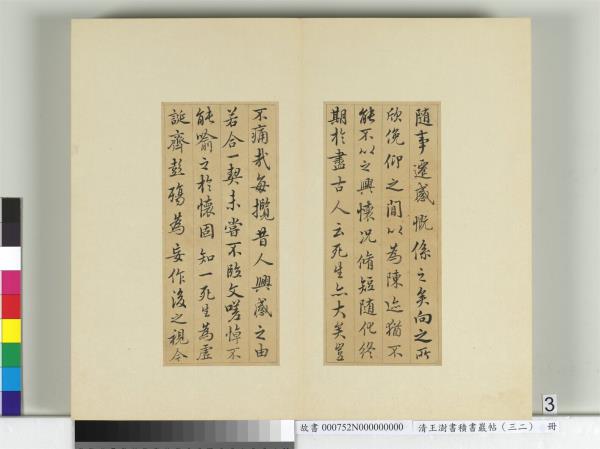 随事遷感慨係之矣向之所
欣俛仰之間以為陳迹猶不
能不以之興懷况脩短随化終
期於盡古人云死生亦大矣豈
不痛哉每攬昔人興感之由
若合一契未嘗不臨文嗟悼不
能喻之於懷固知一死生為虛
誕齊彭殤為妄作後之視今
3
故書 000752N000000000 清王澍書積書巖帖（三二） 冊